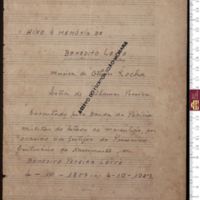 HINO À MEMÓRIA DE
BENEDITO LEITE
Musica de Rocha
Letra de Pereira
Executado pela Banda da Polícia
Militar do Estado do Maranhão, por
ocasião dos festejos do Primeiro
Centenário de Nascimento de
BENEDITO PEREIRA LEITE
4-10-1857 4-10-1957